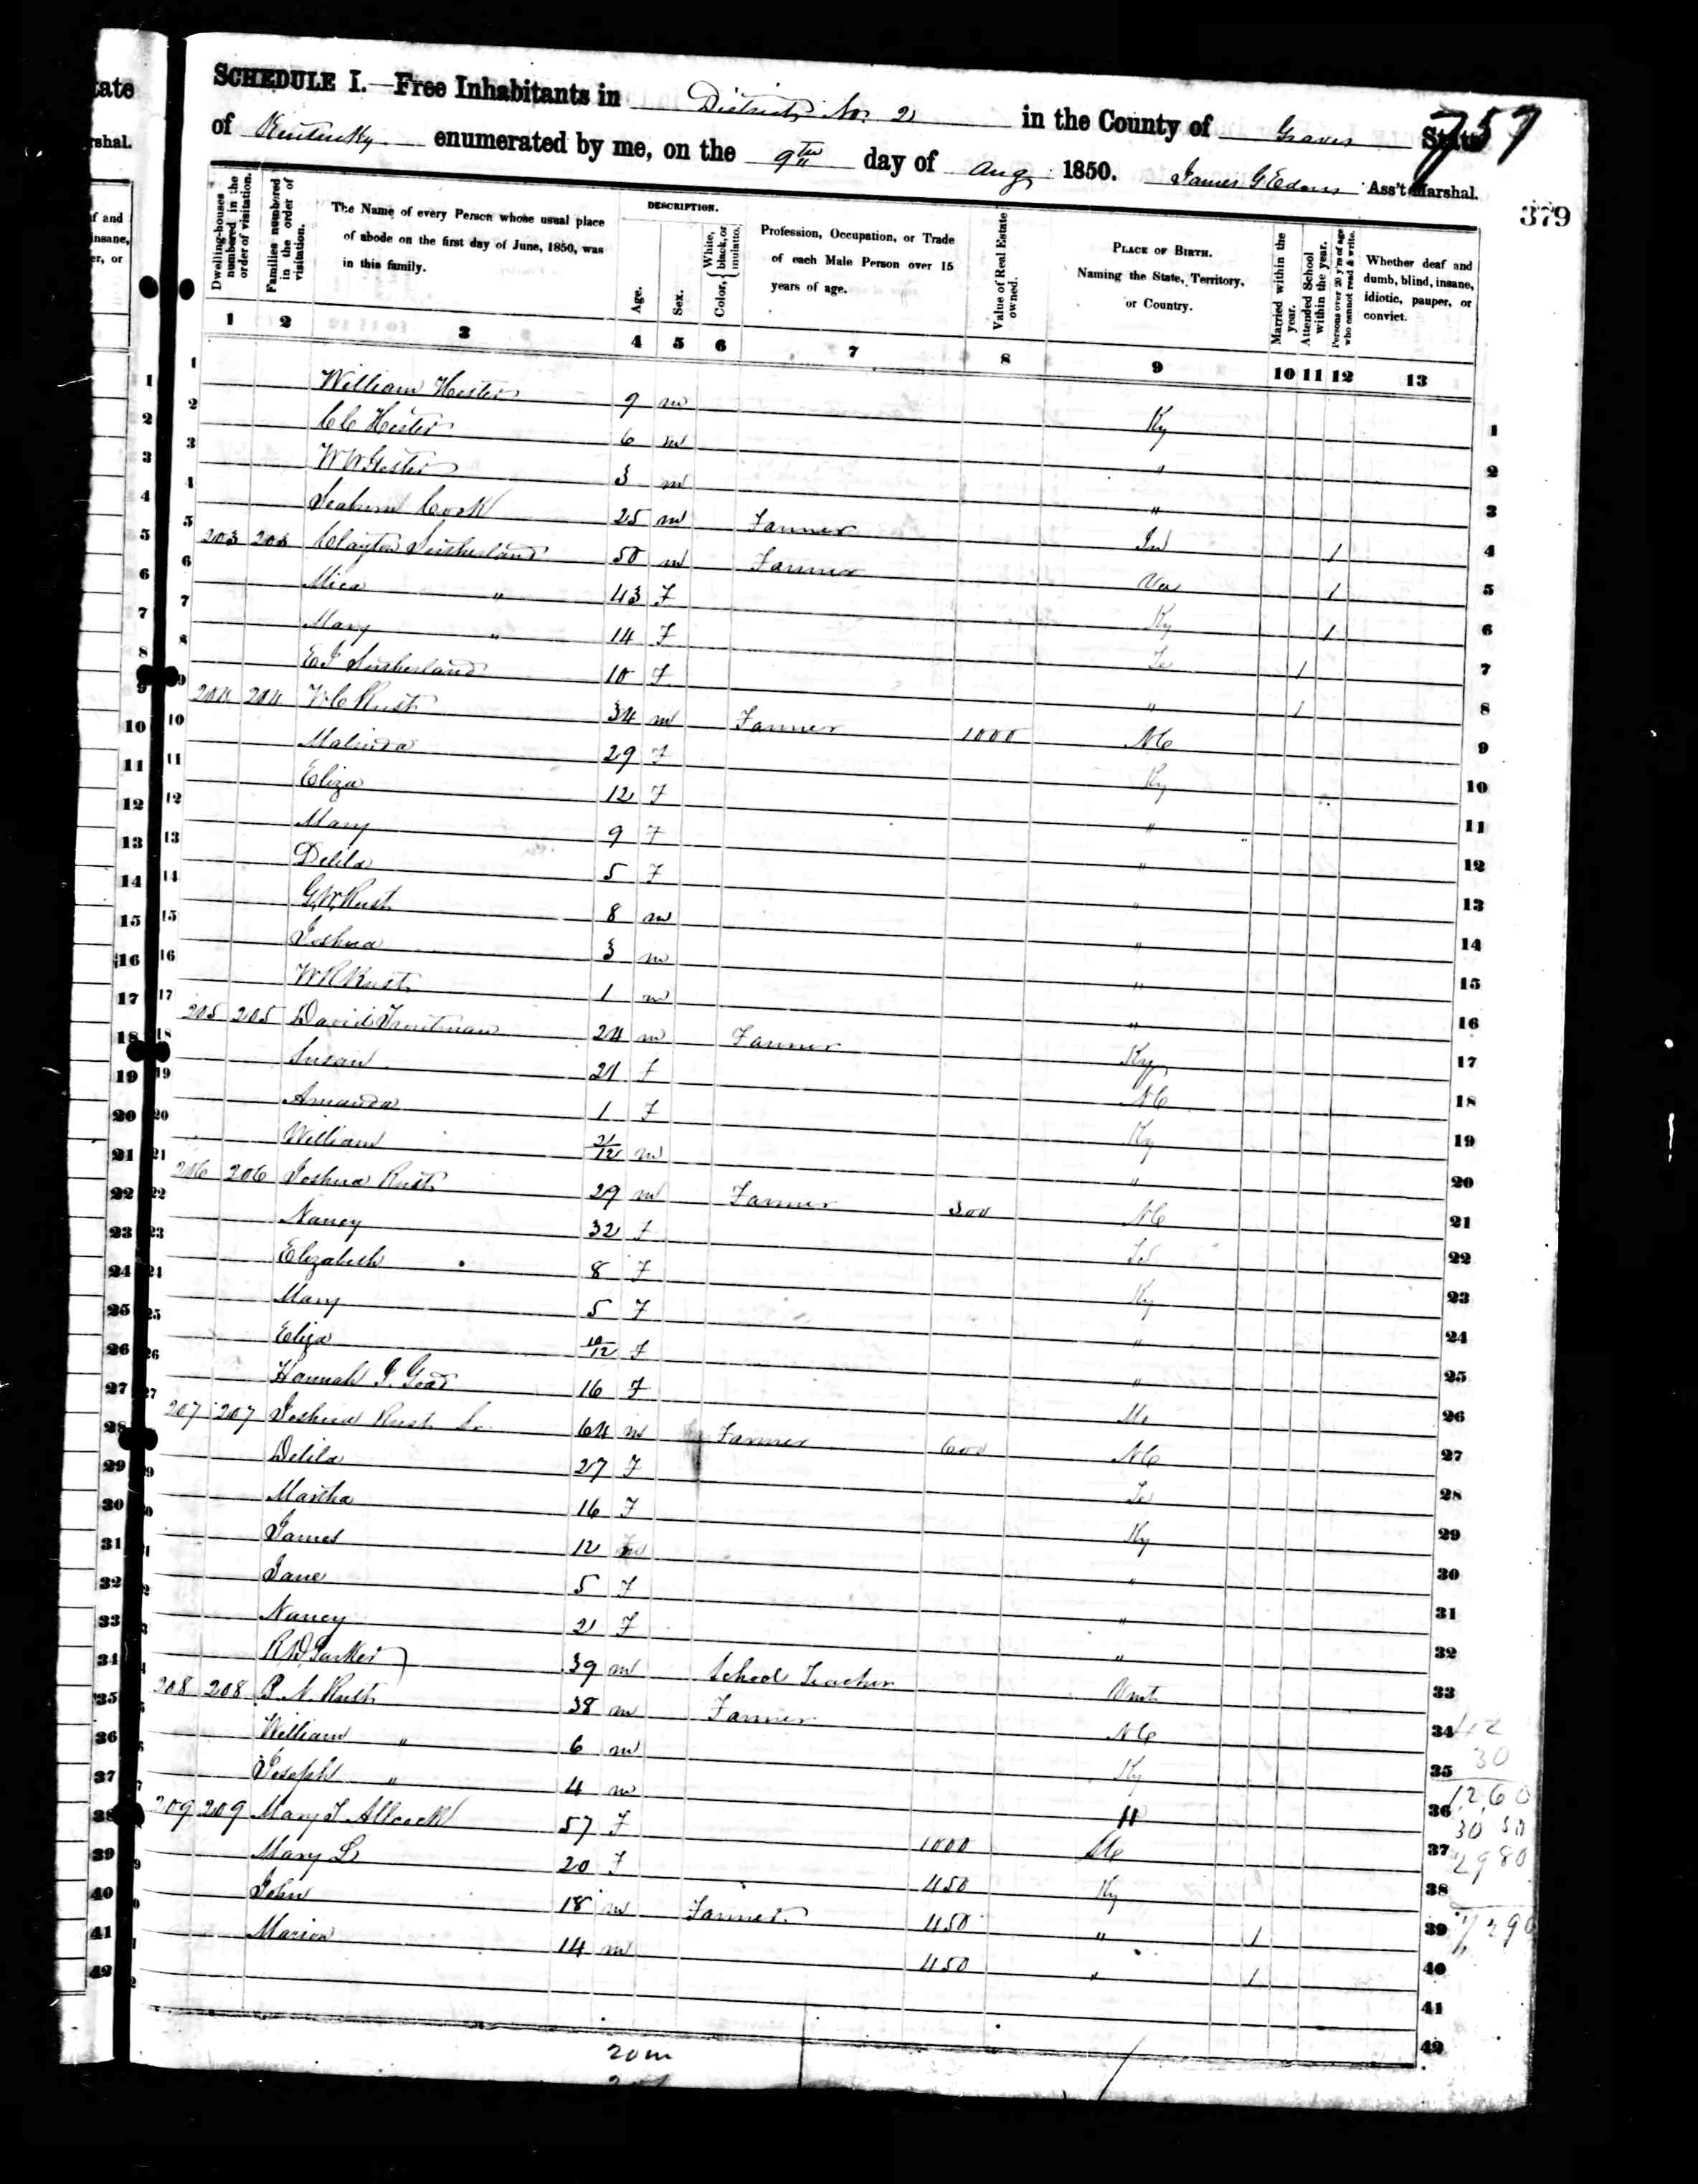 757
SCHEDULE I.—Free Inhabitants in District No. 2 in the County of Graves State
of Kentucky enumerated by me, on the 9th day of Aug 1850. James G Edens Ass't Marshal.
379
Dwelling-houses numbered in the order of visitation.
Families numbered in the order of visitation.
The Name of every Person whose usual place of abode on the first day of June, 1850, was in this family.
DESCRIPTION.
Age.
Sex.
Color, { White, black, or mulatto.
Profession, Occupation, or Trade of each Male Person over 15 years of age.
Value of Real Estate owned.
PLACE OF BIRTH. Naming the State, Territory, or Country.
Married within the year.
Attended School within the year.
Persons over 20 y'rs of age who cannot read & write.
Whether deaf and dumb, blind, insane, idiotic, pauper, or convict.
1 2 3 4 5 6 7 8 9 10 11 12 13
1 William Hester 9 m Ky 1
2 C C Hester 6 m " 2
3 W W Hester 3 m " 3
4 Seaburn Cook 25 m Farmer 1 4
5 203 203 Clayton Sutherland 50 m Farmer Va 1 5
6 Mica " 43 F Ky 1 6
7 Mary " 14 F Te 1 7
8 E J Sutherland 10 F " 1 8
9 204 204 Rust 34 m Farmer 1000 NC 9
10 Malinda 29 F Ky 10
11 Eliza 12 F " 11
12 Mary 9 F " 12
13 Delila 5 F " 13
14 G W Rust 8 m " 14
15 Joshua 3 m " 15
16 W R Rust 1 m " 16
17 205 205 David Troutman 24 m Farmer Ky 17
18 Susan 21 f NC 18
19 Amanda 1 F Ky 19
20 William 2/12 m " 20
21 206 206 Joshua Rust 29 m Farmer 300 NC 21
22 Nancy 32 F Te 22
23 Elizabeth 8 F Ky 23
24 Mary 5 F " 24
25 Eliza 10/12 F " 25
26 Hannah J. Goad 16 F Mo 26
27 207 207 Joshua Rust Sr 64 m Farmer 600 NC 27
28 Delila 27 F Te 28
29 Martha 16 F Ky 29
30 James 12 m " 30
31 Jane 5 F " 31
32 Nancy 2 F " 32
33 R D Parker 39 m School Teacher Vmt 33
34 208 208 P. N. Rust 38 m Farmer NC 34
35 William " 6 m Ky 35
36 Joseph " 4 m " 36
37 209 209 Mary T Allcock 57 F 1000 NC 37
38 Mary L 20 F 450 Ky 38
39 John 18 m Farmer 450 " 1 39
40 Marion 14 m 450 " 1 40
41
42
30
1260
2980
20 m